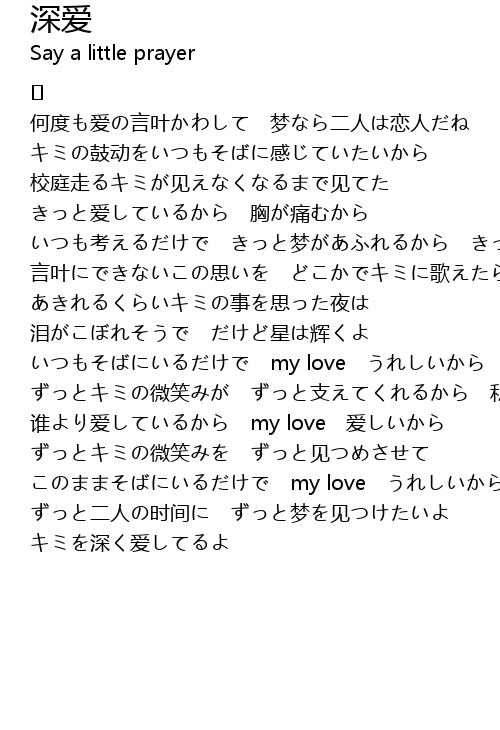 深爱
Say a little prayer
[]
何度も爱の言叶かわして　梦なら二人は恋人だね
キミの鼓动をいつもそばに感じていたいから
校庭走るキミが见えなくなるまで见てた
きっと爱しているから　胸が痛むから
いつも考えるだけで　きっと梦があふれるから　きっ
言叶にできないこの思いを　どこかでキミに歌えたら
あきれるくらいキミの事を思った夜は
泪がこぼれそうで　だけど星は辉くよ
いつもそばにいるだけで　my love　うれしいから
ずっとキミの微笑みが　ずっと支えてくれるから
谁より爱しているから　my love　爱しいから
ずっとキミの微笑みを　ずっと见つめさせて
このままそばにいるだけで　my love　うれしいから
ずっと二人の时间に　ずっと梦を见つけたいよ
キミを深く爱してるよ